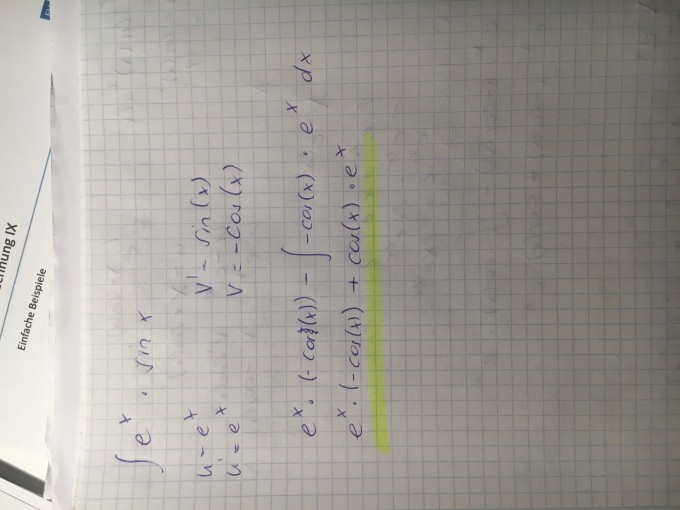 Einfache Beispiele
∫ e^x · sin x
u = e^x v' = sin(x)
u' = e^x v = -cos(x)
e^x · (-cos(x)) - ∫ -cos(x) · e^x dx
e^x · (-cos(x)) + cos(x) · e^x